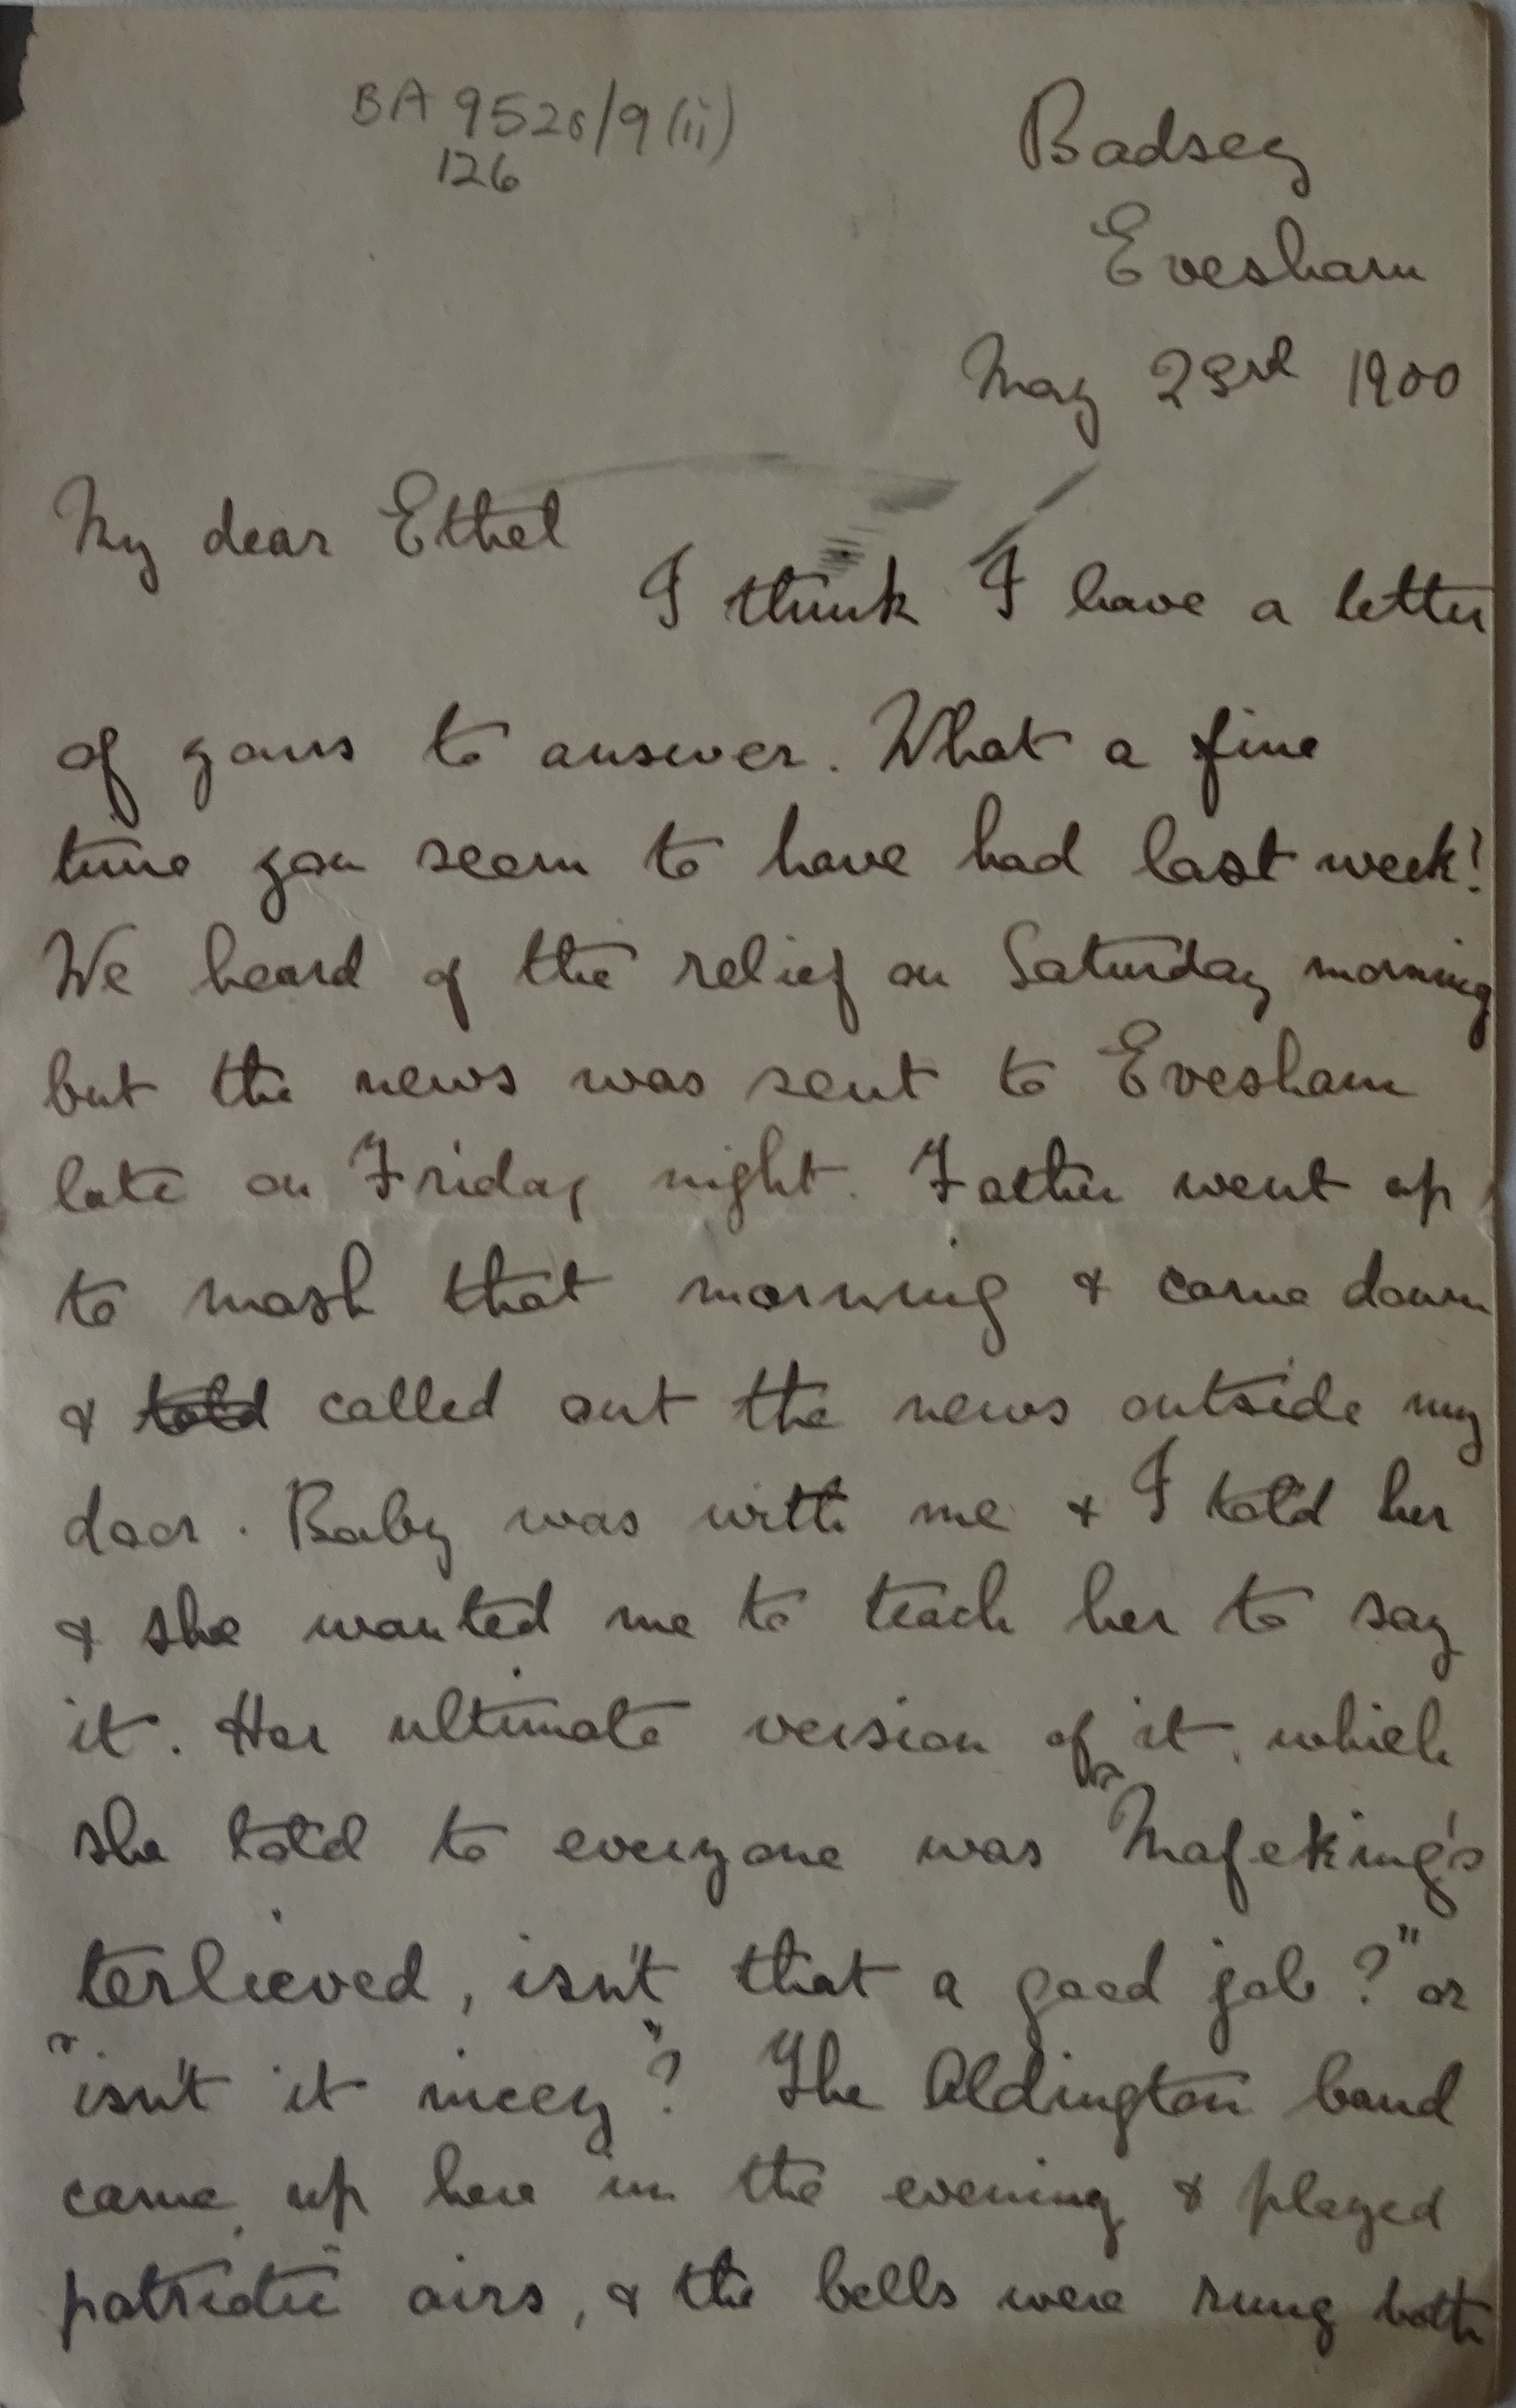 BA 9520/9 (ii)
126
Badsey
Evesham
May 23rd 1900
My dear Ethel
I think I have a letter
of yours to answer. What a fine
time you seem to have had last week!
We heard of the relief on Saturday morning
but the news was sent to Evesham
late on Friday night. Father went up
to mash that morning & came down
& told called out the news outside my
door. Baby was with me & I told her
& she wanted me to teach her to say
it. Her ultimate version of it, which
she told to everyone was "Mafeking's
terlieved, isn't that a good job?" or
"isn't it niceey"? The Aldington band
came up here in the evening & played
patriotic airs, & the bells were rung both